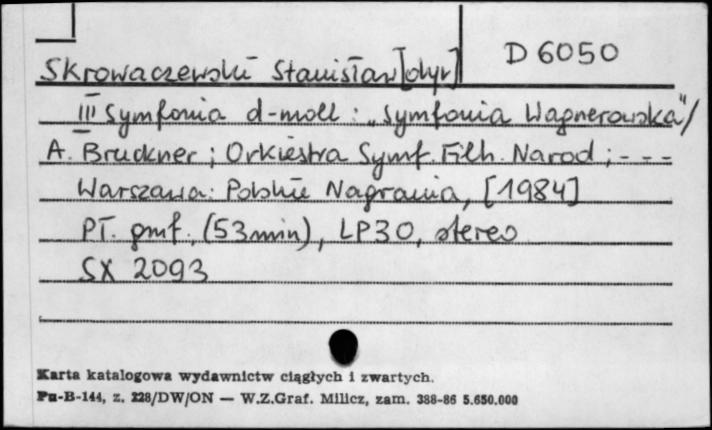 D 6050
Skrowaczewski Stanisław [dyr]
III Symfonia d-moll : „Symfonia Wagnerowska"/
A. Bruckner ; Orkiestra Symf. Filh. Narod ; - - -
Warszawa: Polskie Nagrania, [1984]
Pł. gmf. (53 min), LP30, stereo
SX 2093
Karta katalogowa wydawnictw ciągłych i zwartych.
Pu-B-144, z. 228/DW/ON — W.Z.Graf. Milicz, zam. 388-86 5.650.000